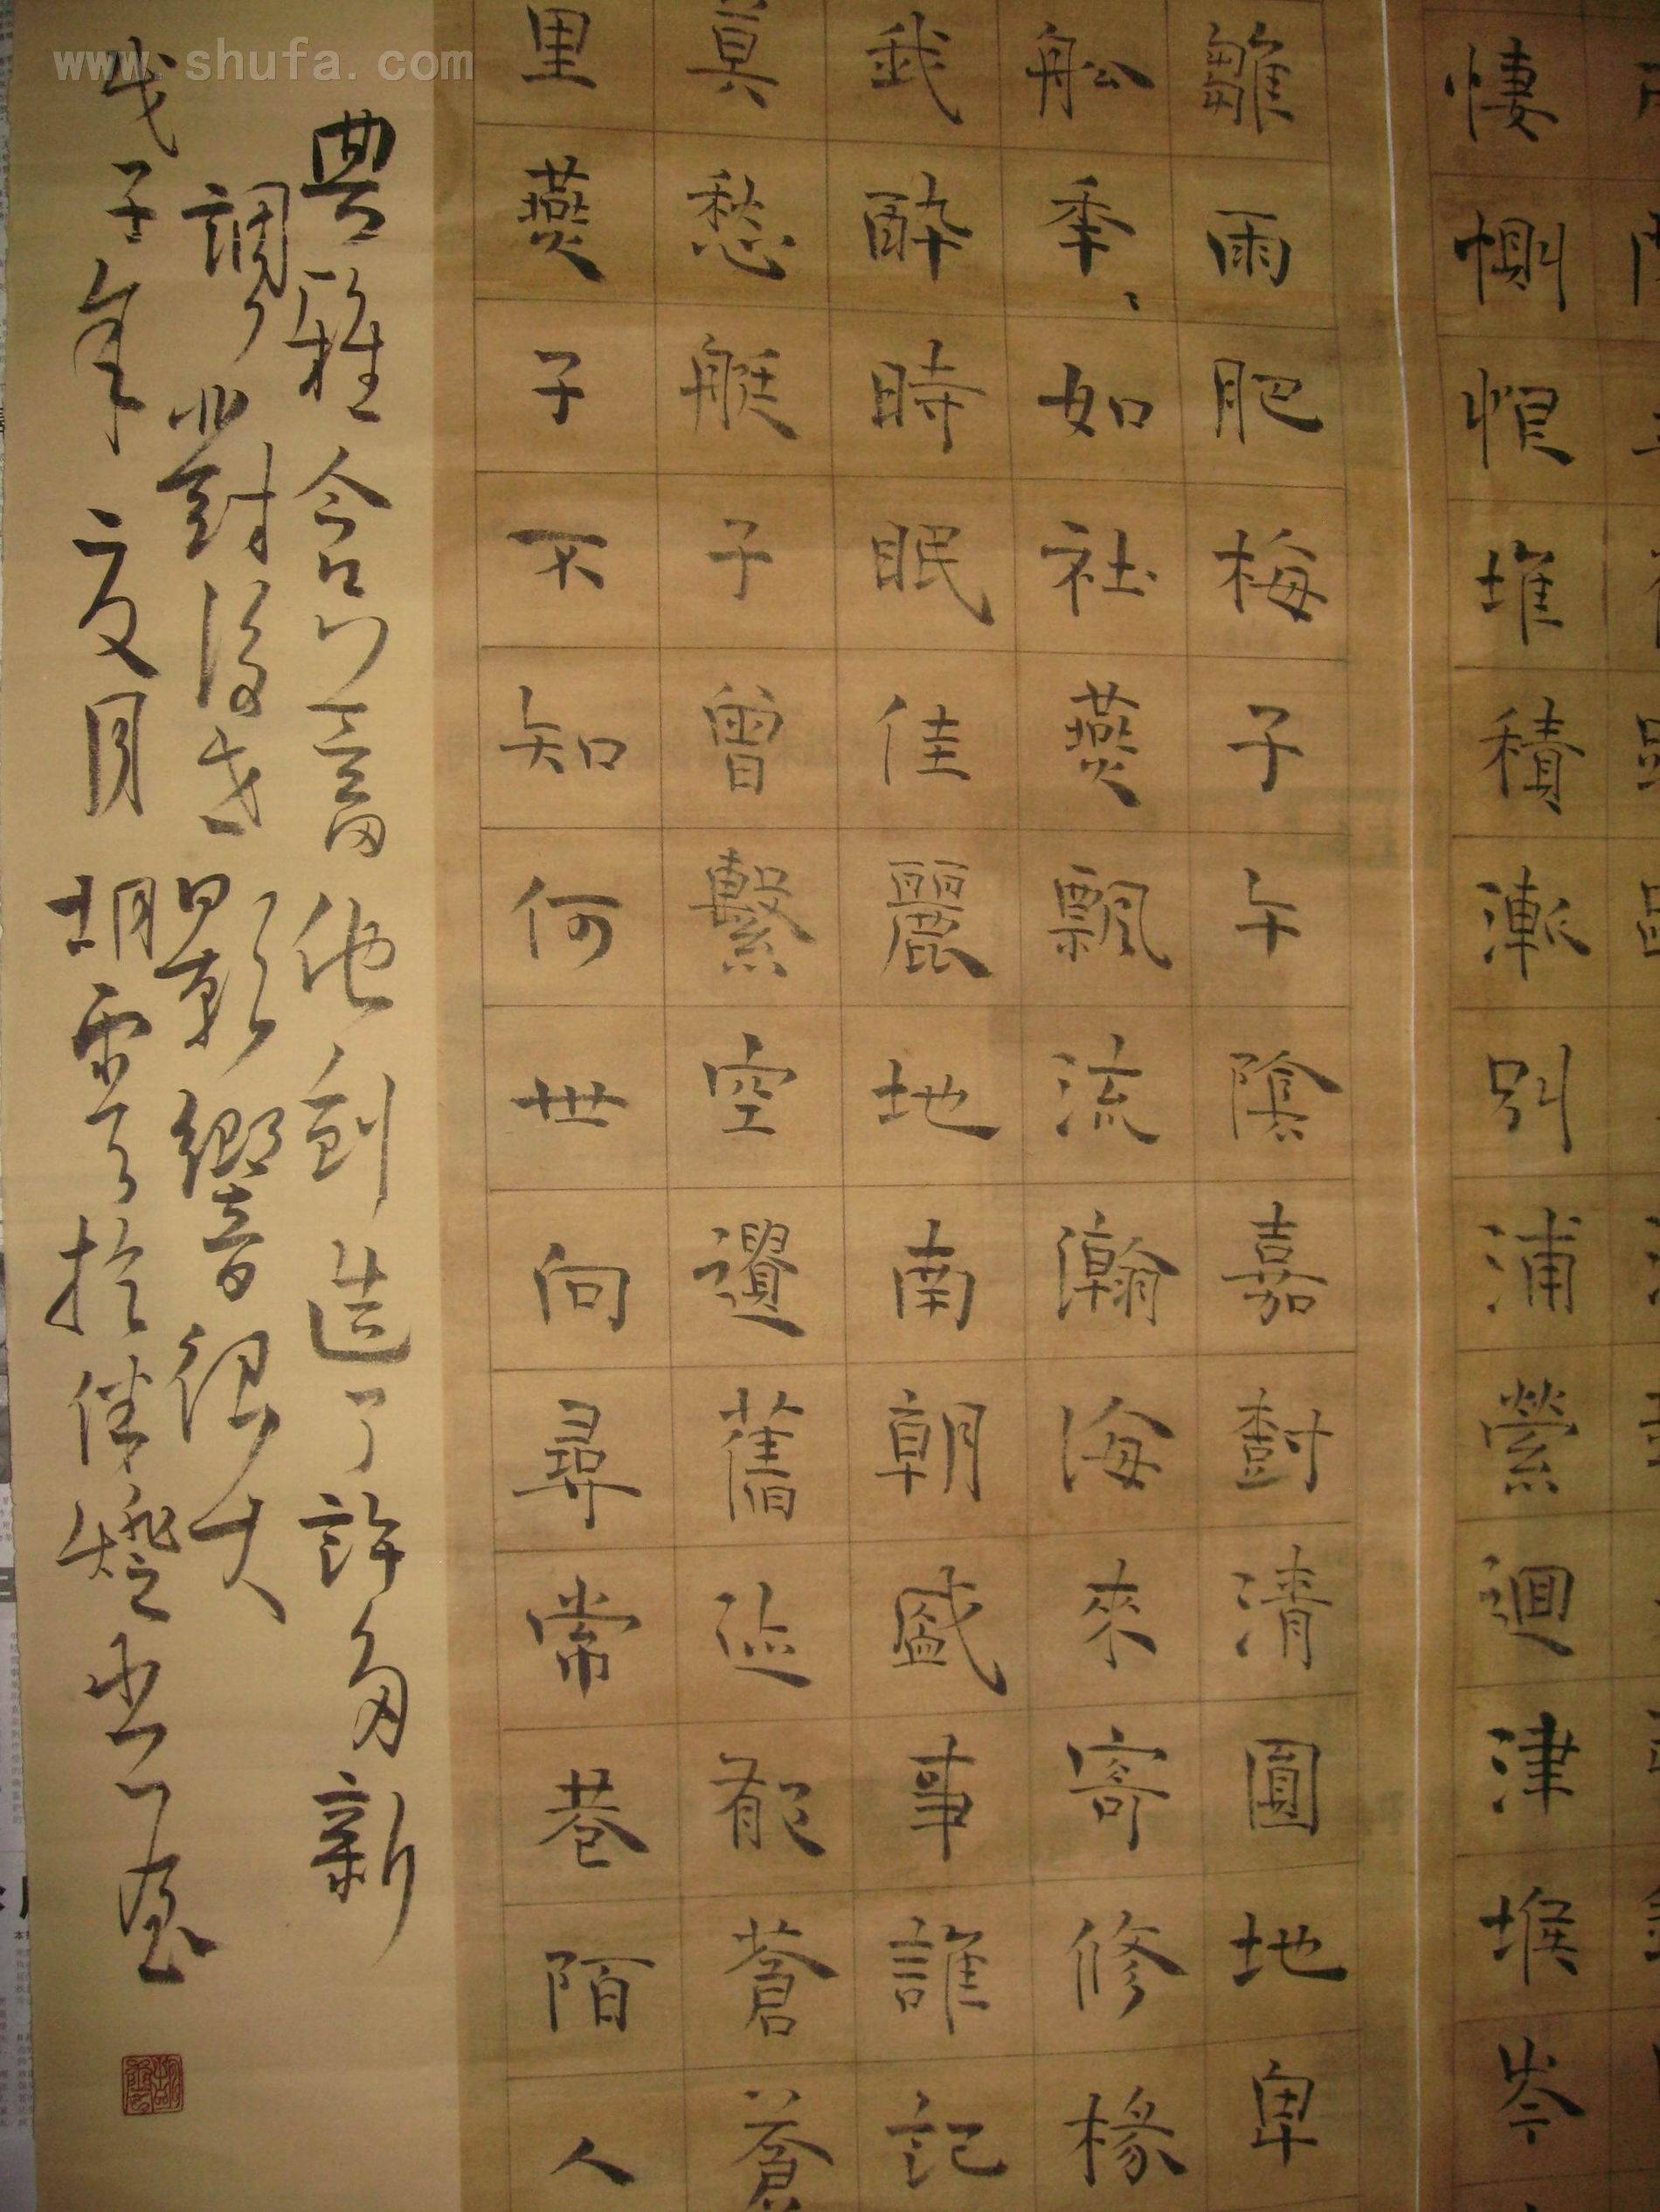 悽惻恨堆積漸別浦縈迴津堠岑
雛雨肥梅子午陰嘉樹清圓地卑
船季〻如社燕飄流瀚海來寄修椽
我醉時眠佳麗地南朝盛事誰記
莫愁艇子曾繫空遺舊迹鬱蒼蒼
里燕子不知何世向尋常巷陌人
典雅含蓄他創造了許多新
調並對後世影響很大
戊子年夏月胡雲於伴燈書屋
www.shufa.com